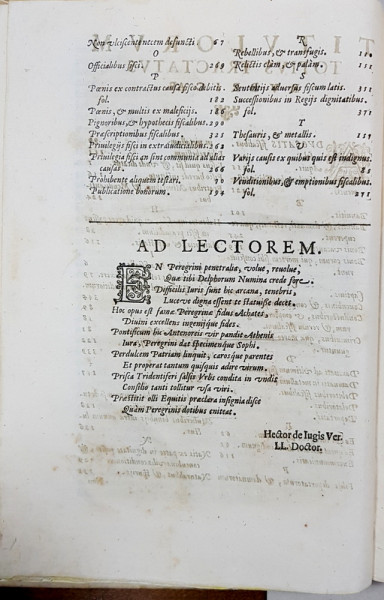 Non vlciscentem defuncti 67
O
Officialibus fisci. 269
P
Pœnis ex contractus causa fisco debitis.
fol. 182
Pœnis, & multis ex maleficijs. 186
Pignoribus, & hypothecis fiscalibus. 298
Præscriptionibus fiscalibus. 321
Priuilegijs fisci in extraiudicialibus. 262
Priuilegia fisci an sint communia ad alias
causas. 266
Prohibente aliquem testari. 70
Publicatione bonorum. 194
R
Rebellibus, & transfugis.
Relictis clàm, & palàm.
S
Sententijs aduersus fiscum latis. 351
Successionibus in Regijs dignitatibus.
fol. 371
T
Thesauris, & metallis.
V
Varijs causis ex quibus quis est indignus.
fol. 81
Venditionibus, & emptionibus fiscalibus.
fol. 211
AD LECTOREM.
EN Peregrini penetralia, volue, reuolue,
Quæ tibi Delphorum Numina crede fore
Difficilis Iuris sunt hic arcana, tenebris,
Luce ve digna essent et statuisse decet.
Hoc opus est famæ Peregrinæ fidus Achates,
Diuini excellens ingenijque fides.
Pontificum hic Antenoreis vir pandit Athenis
Iura, Peregrini das specimenque Sophi,
Perdulcem Patriam linquit, carosque parentes
Et properat tantum quisquis adire virum.
Prisca Tridentiferi salsis Vrbs condita in vndis
Consilio tanti tollitur vsa viri.
Præstitit olli Equitis præclara insignia disce
Quàm Peregrinis dotibus eniteat.
Hector de Iugis Ver.
LL. Doctor.